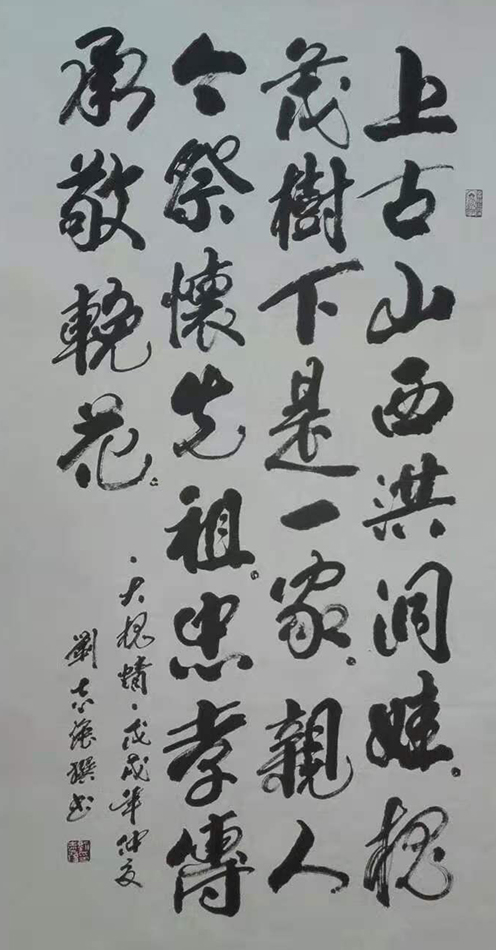 上古山西洪洞娃。槐
茂樹下是一家。親人
今祭懷先祖。忠孝傳
承敬輓花。
·大槐情·戊戌年仲夏
劉志強撰书